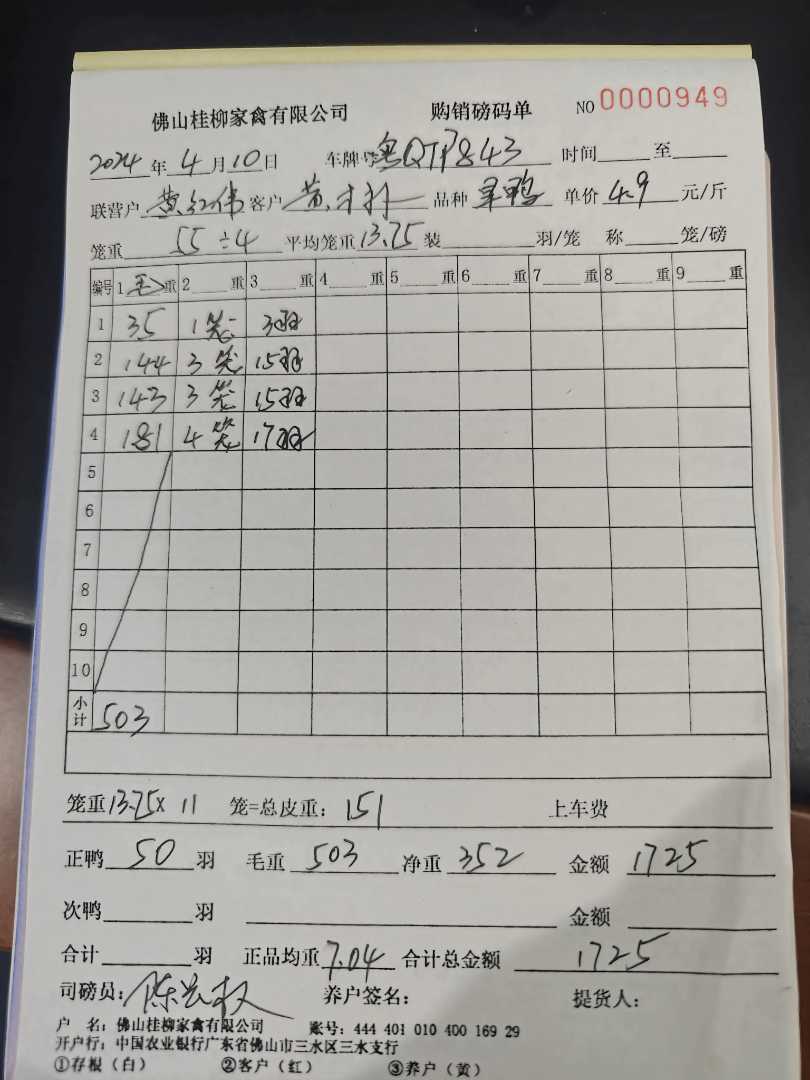 佛山桂柳家禽有限公司 购销磅码单 NO 0000949
2024 年 4 月 10 日 车牌号 粤QTP843 时间 至
联营户 黄红伟 客户 黄 品种 旱鸭 单价 4.9 元/斤
笼重 55÷4 平均笼重 13.75 装 羽/笼 称 笼/磅
编号 1 毛 重 2 重 3 重 4 重 5 重 6 重 7 重 8 重 9 重
1 35 1笼 3羽
2 144 3笼 15羽
3 143 3笼 15羽
4 181 4笼 17羽
5
6
7
8
9
10
小计 503
笼重 13.75 x 11 笼=总皮重: 151 上车费
正鸭 50 羽 毛重 503 净重 352 金额 1725
次鸭 羽 金额
合计 羽 正品均重 7.04 合计总金额 1725
司磅员: 陈 权 养户签名: 提货人:
户 名: 佛山桂柳家禽有限公司 账号: 444 401 010 400 169 29
开户行: 中国农业银行广东省佛山市三水区三水支行
①存根(白) ②客户(红) ③养户(黄)